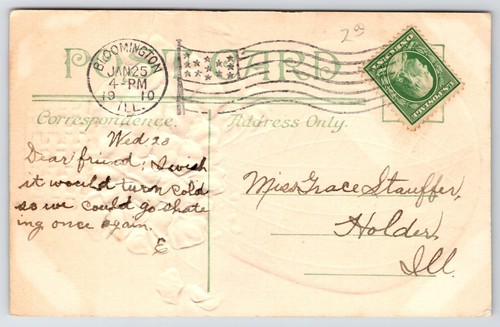 2.00
POST CARD
BLOOMINGTON
JAN 25
4-PM
19 10
ILL.
Correspondence.
Address Only.
Wed 20
Dear friend; I wish
it would turn cold
so we could go skate
ing once again.
E
Miss Grace Stauffer,
Holder,
Ill.